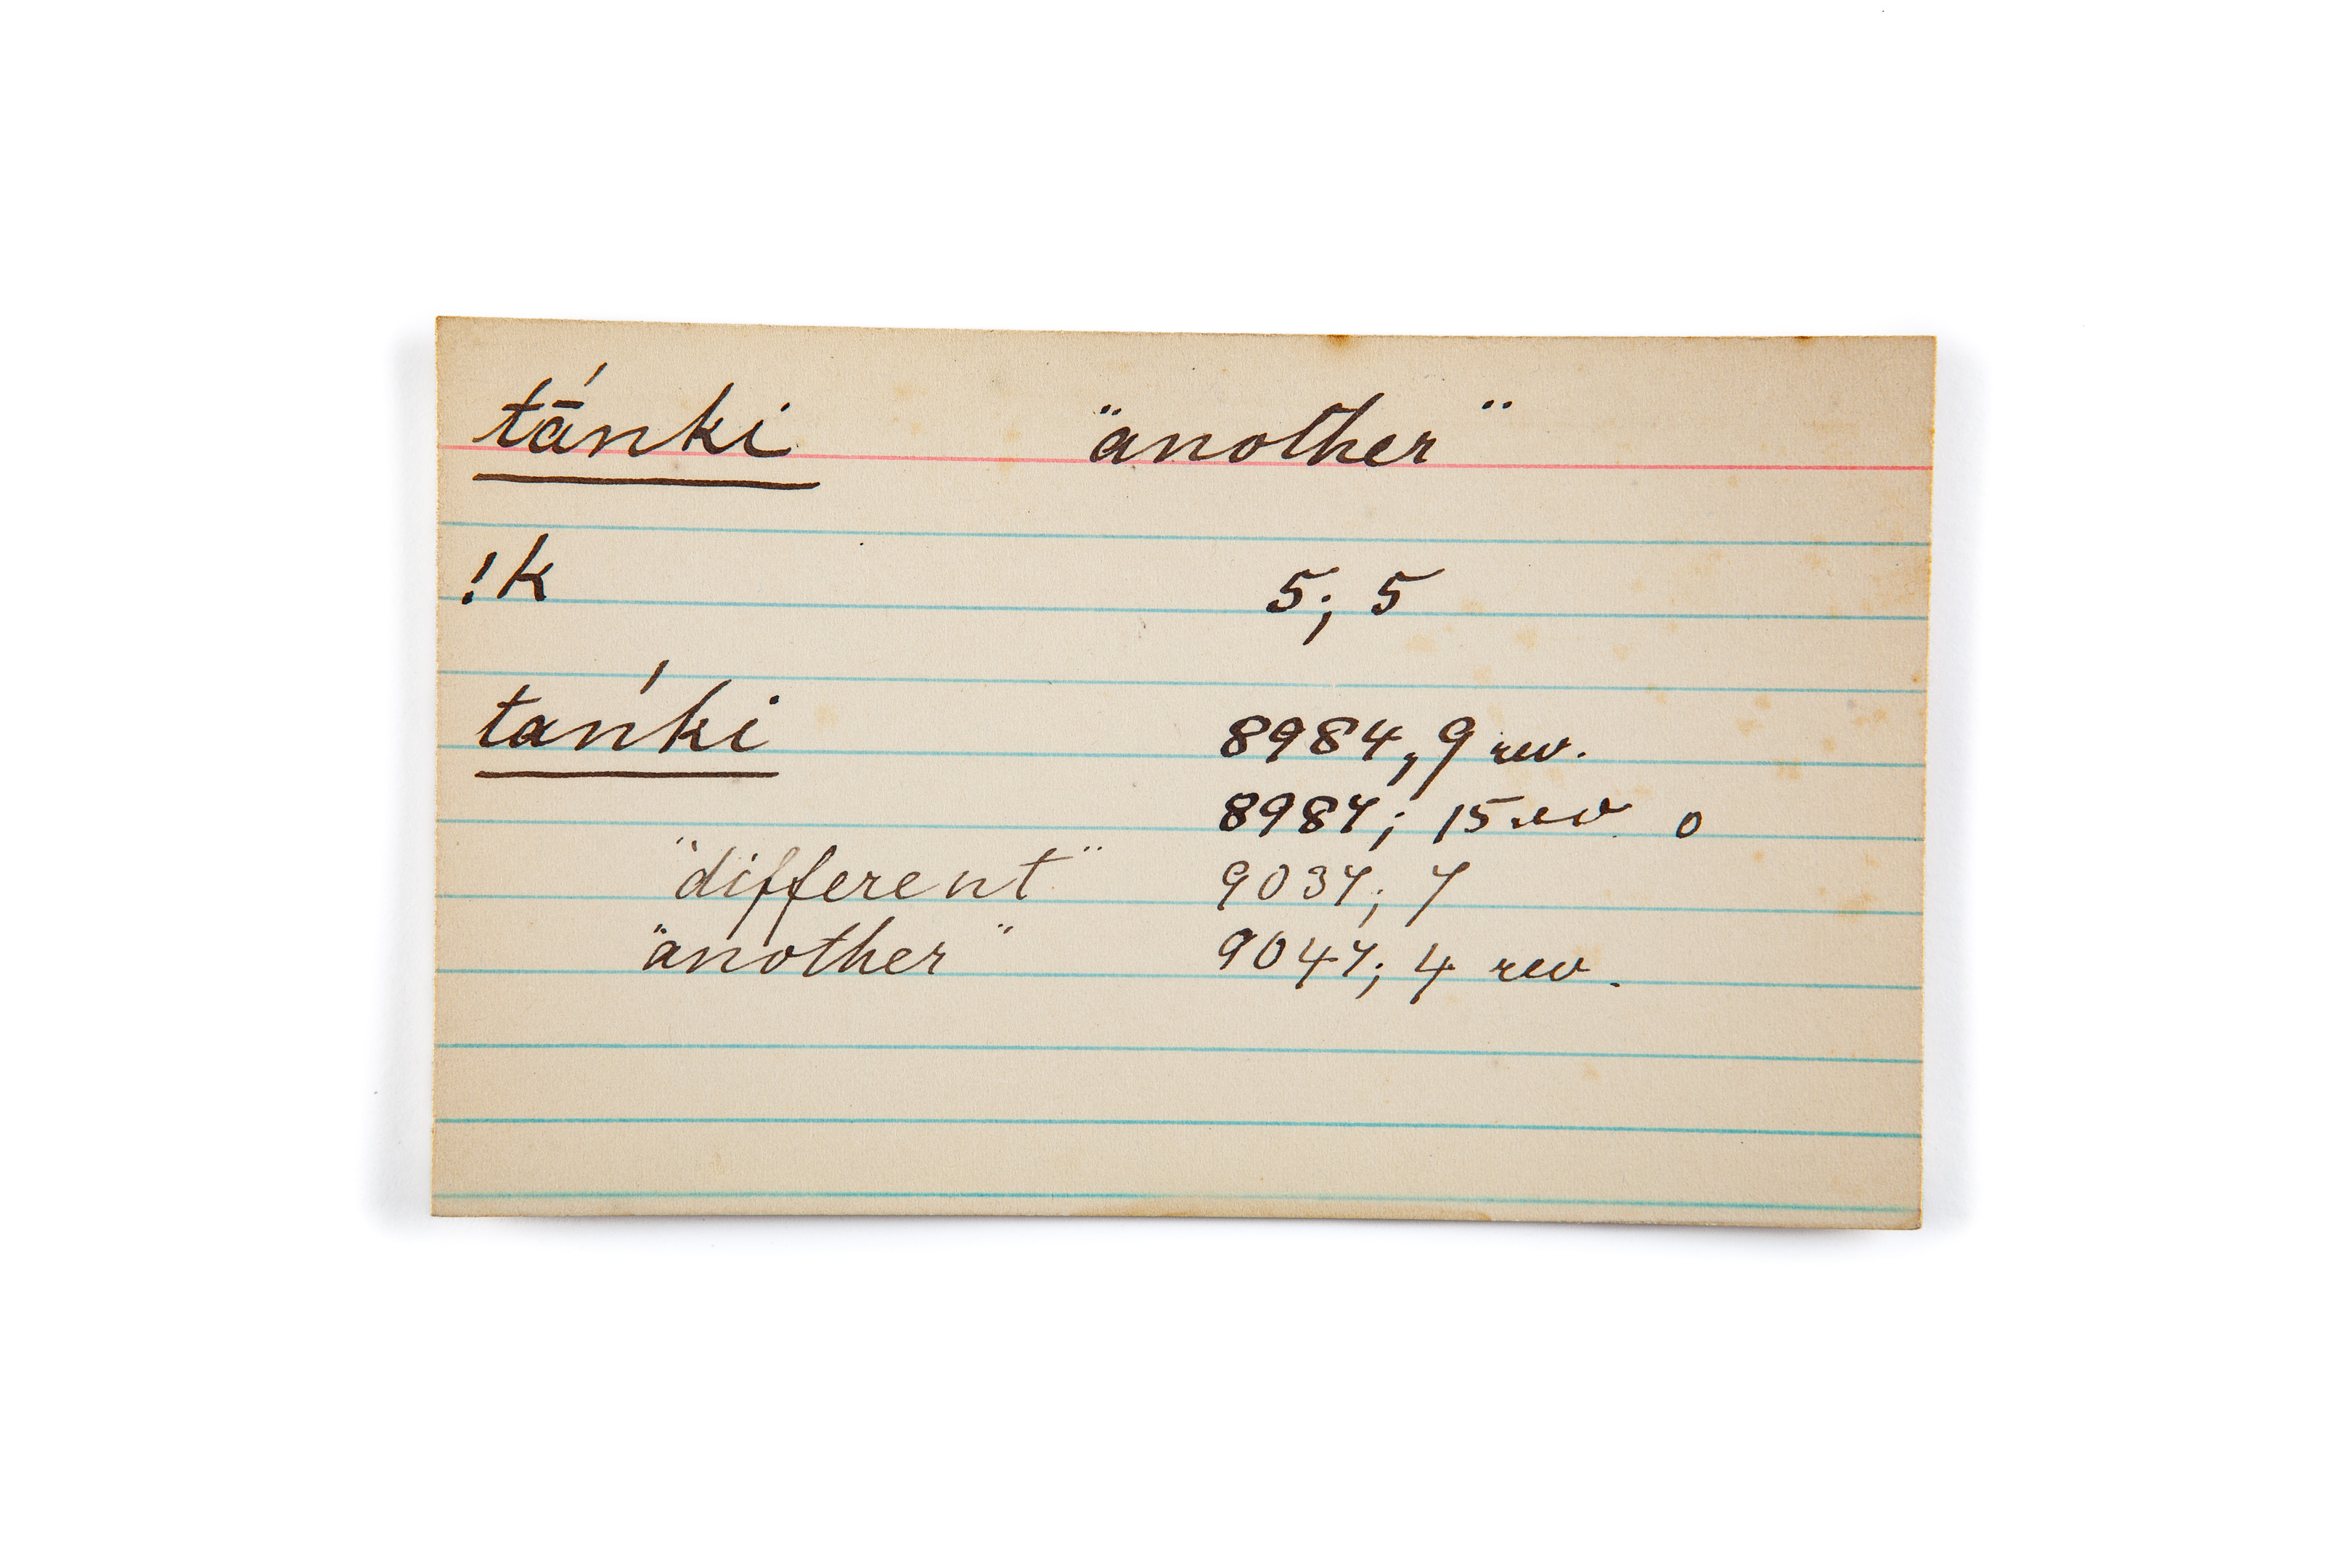 tā́nki "another"
!k 5; 5
tań'ki 8984, 9 rev.
8984; 15 rev o
"different" 9034; 7
"another" 9047; 4 rev.